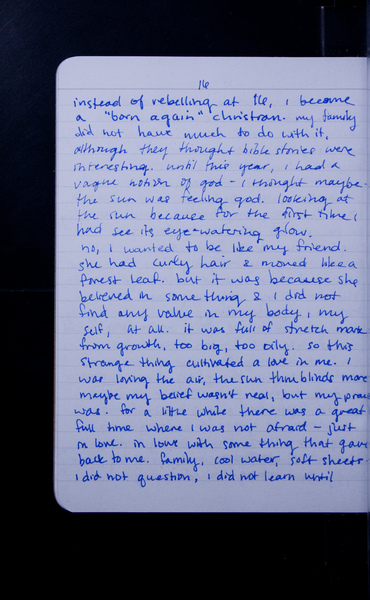 16
instead of rebelling at 16, i became
a "born again" christian. my family
did not have much to do with it,
although they thought bible stories were
interesting. until this year, i had a
vague notion of god - i thought maybe
the sun was feeling god. looking at
the sun because for the first time i
had see its eye-watering glow.
no, i wanted to be like my friend.
she had curly hair & moved like a
forest leaf. but it was because she
believed in something & i did not
find any value in my body, my
self, at all. it was full of stretch mark
from growth, too big, too oily. so this
strange thing cultivated a love in me. i
was loving the air, the sun thru blinds more
maybe my belief wasn't real, but my
was. for a little while there was a great
full time where i was not afraid - just
in love. in love with some thing that gave
back to me. family, cool water, soft sheets
i did not question, i did not learn until